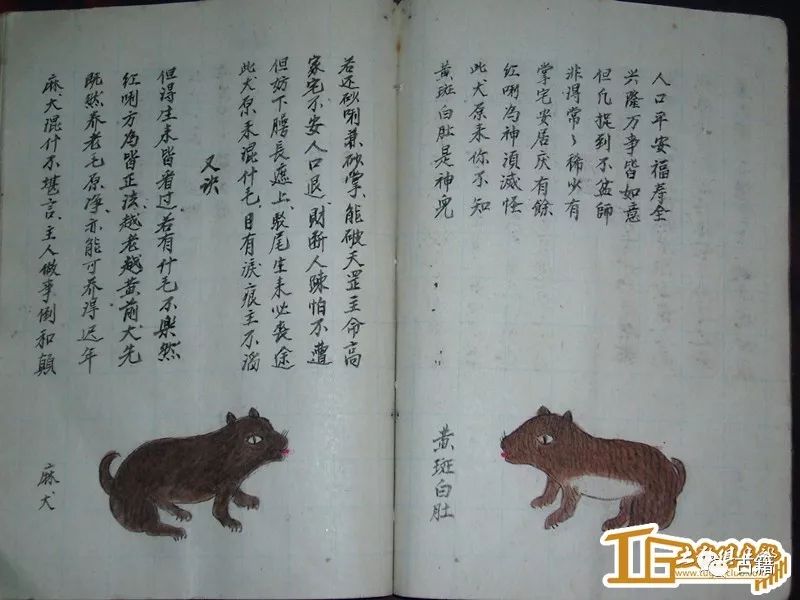 人口平安福寿全
兴隆万事皆如意
但凡捉到不益師
非得常〻稀少有
掌宅安居庆有餘
红唎為神滇滅怪
此犬原来你不知
黄斑白肚是神兒
黄斑白肚
若还砂唎兼砂掌、能破天罡主命高
家宅不安人口退、財断人陳怕不遭
但妨下腰長遮上、駁尾生来必丧途
此犬原来混什毛、目有淚痕主不滔
又诀
但得生来皆看过、若有什毛不樂然
红唎方為皆正法、越老越黄前犬先
既然养老毛原净、亦能可养得迟年
麻犬混什不堪言、主人做事倒和顛
麻犬
古籍